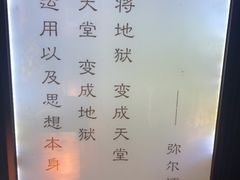 运用以及思想本身
天堂 变成地狱
将地狱 变成天堂
—— 弥尔